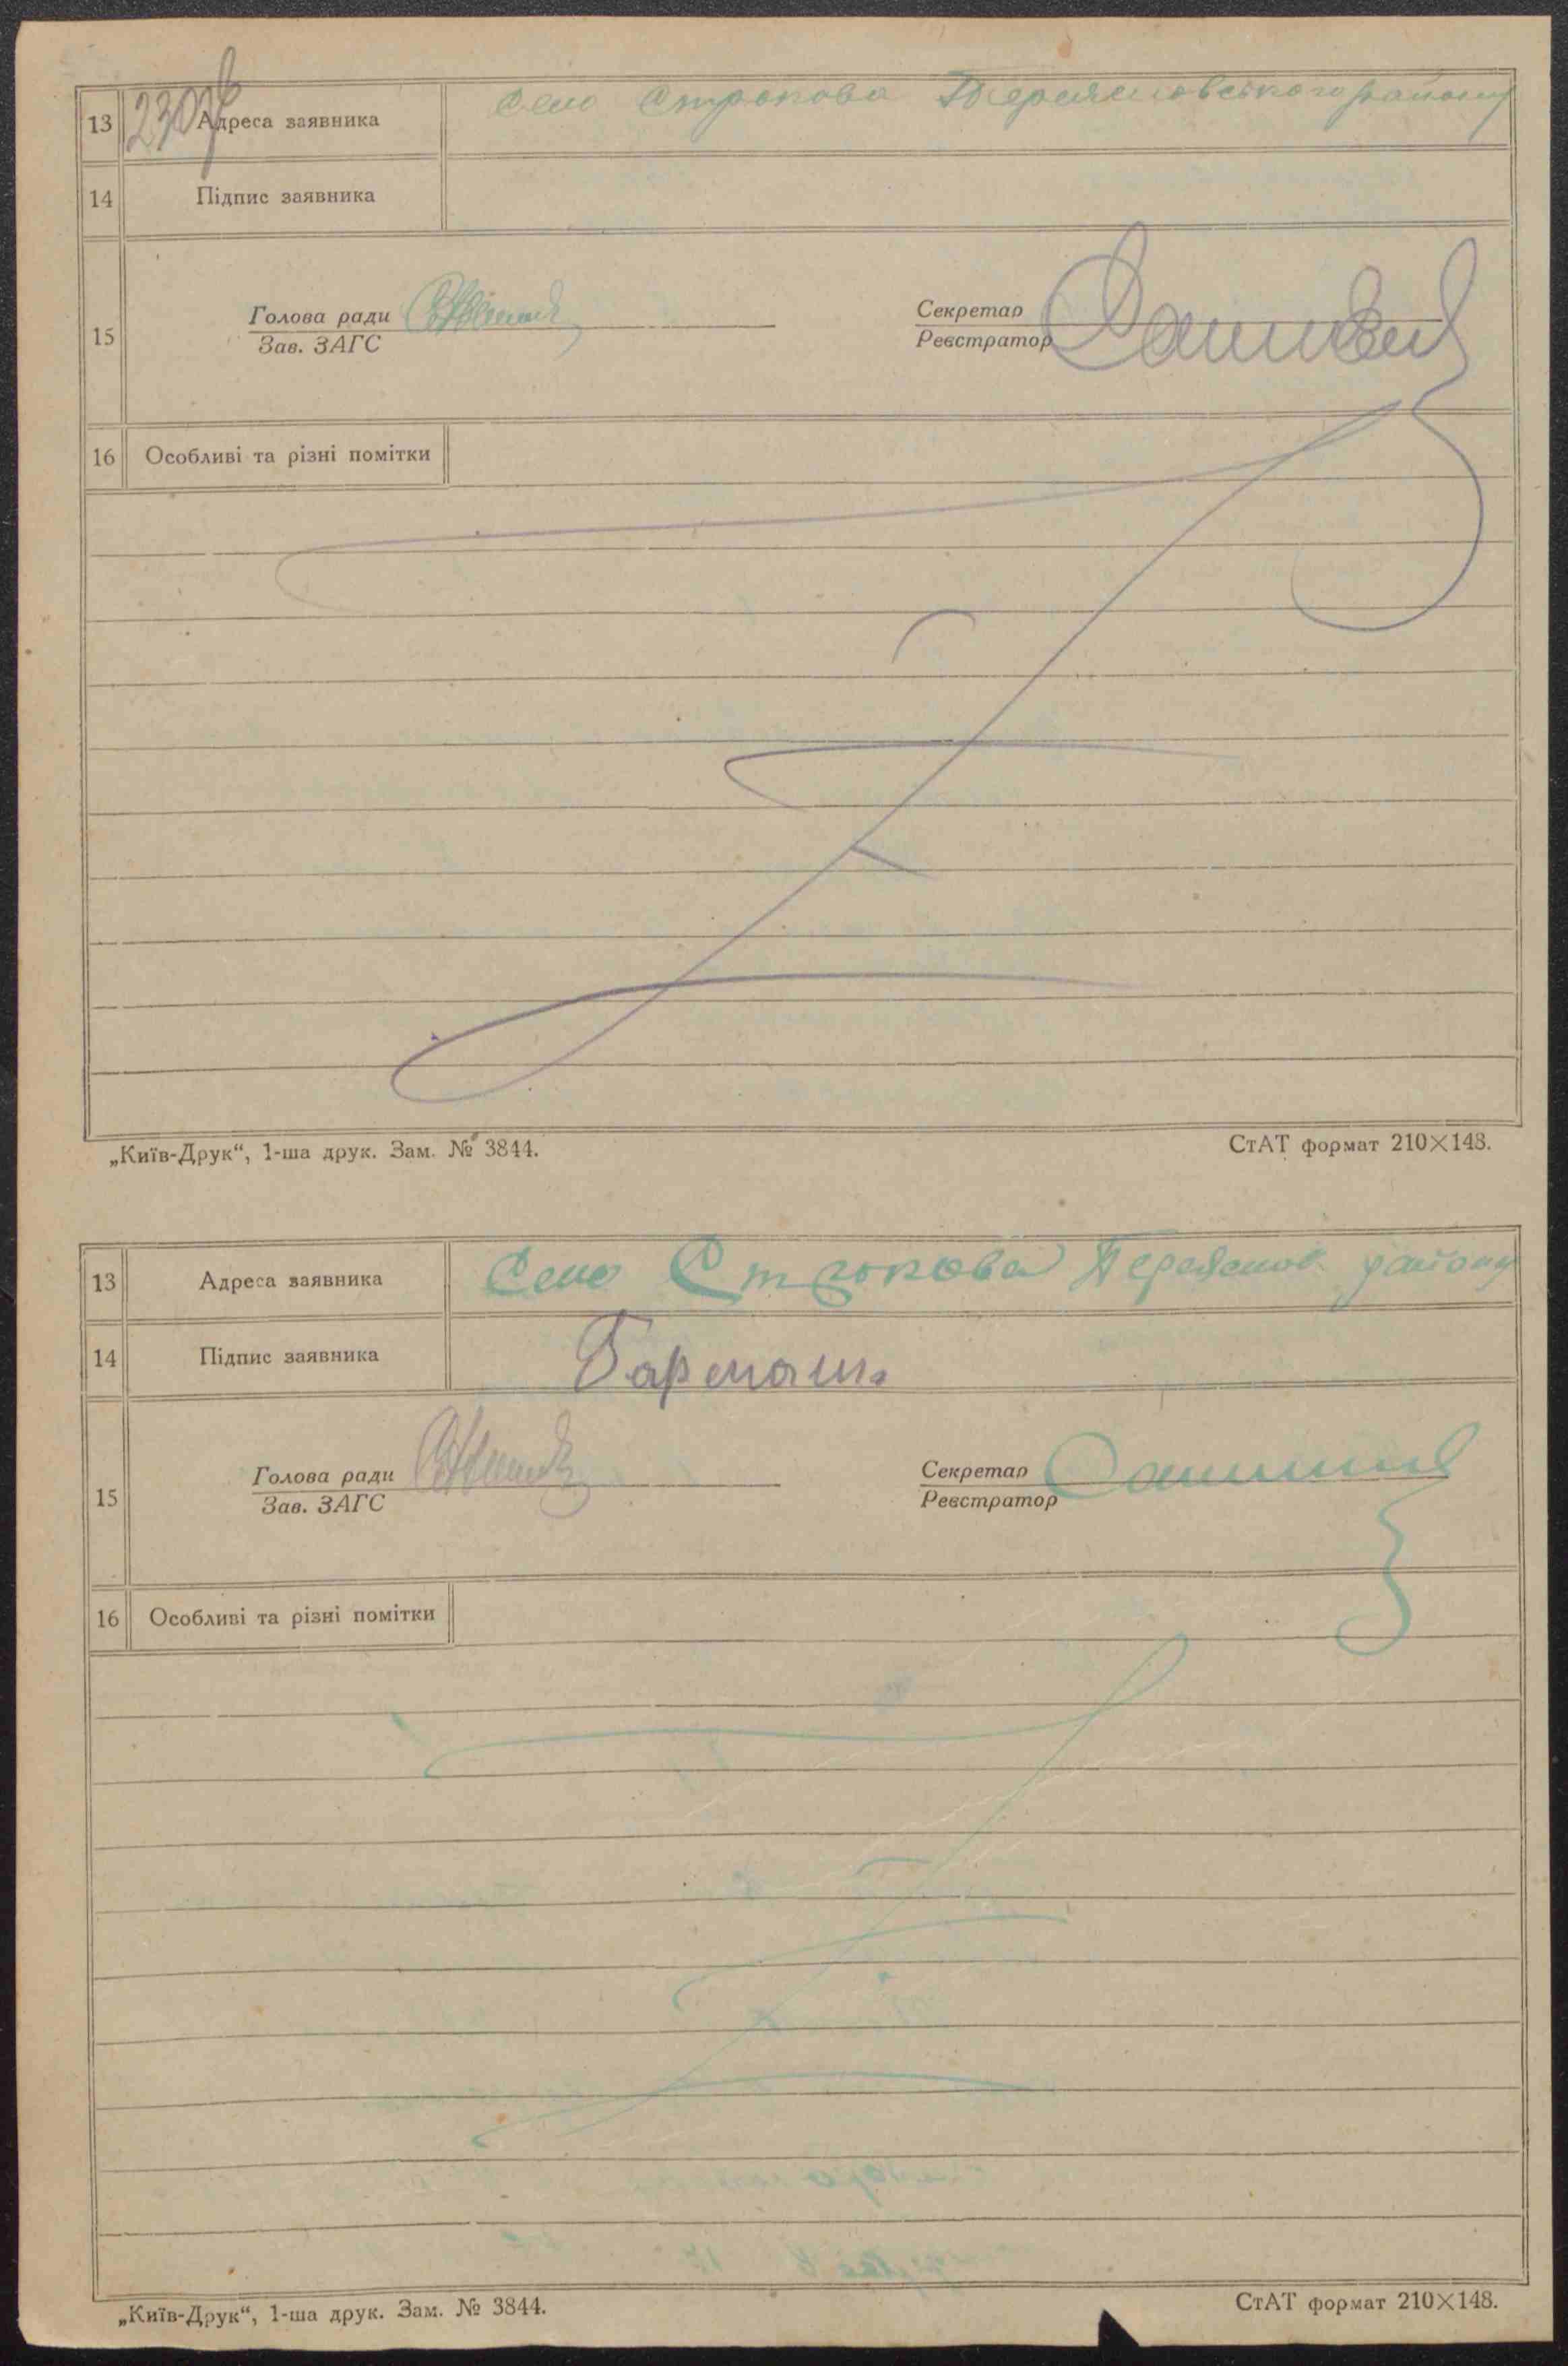 13 Адреса заявника Село Строкова Переяславського району
14 Підпис заявника
15 Голова ради Секретар
Зав. ЗАГС Реєстратор
16 Особливі та різні помітки
„Київ-Друк“, 1-ша друк. Зам. № 3844. СтАТ формат 210×148.
13 Адреса заявника Село Строкова Переяслов. району
14 Підпис заявника Гармаш.
15 Голова ради Секретар
Зав. ЗАГС Реєстратор
16 Особливі та різні помітки
„Київ-Друк“, 1-ша друк. Зам. № 3844. СтАТ формат 210×148.